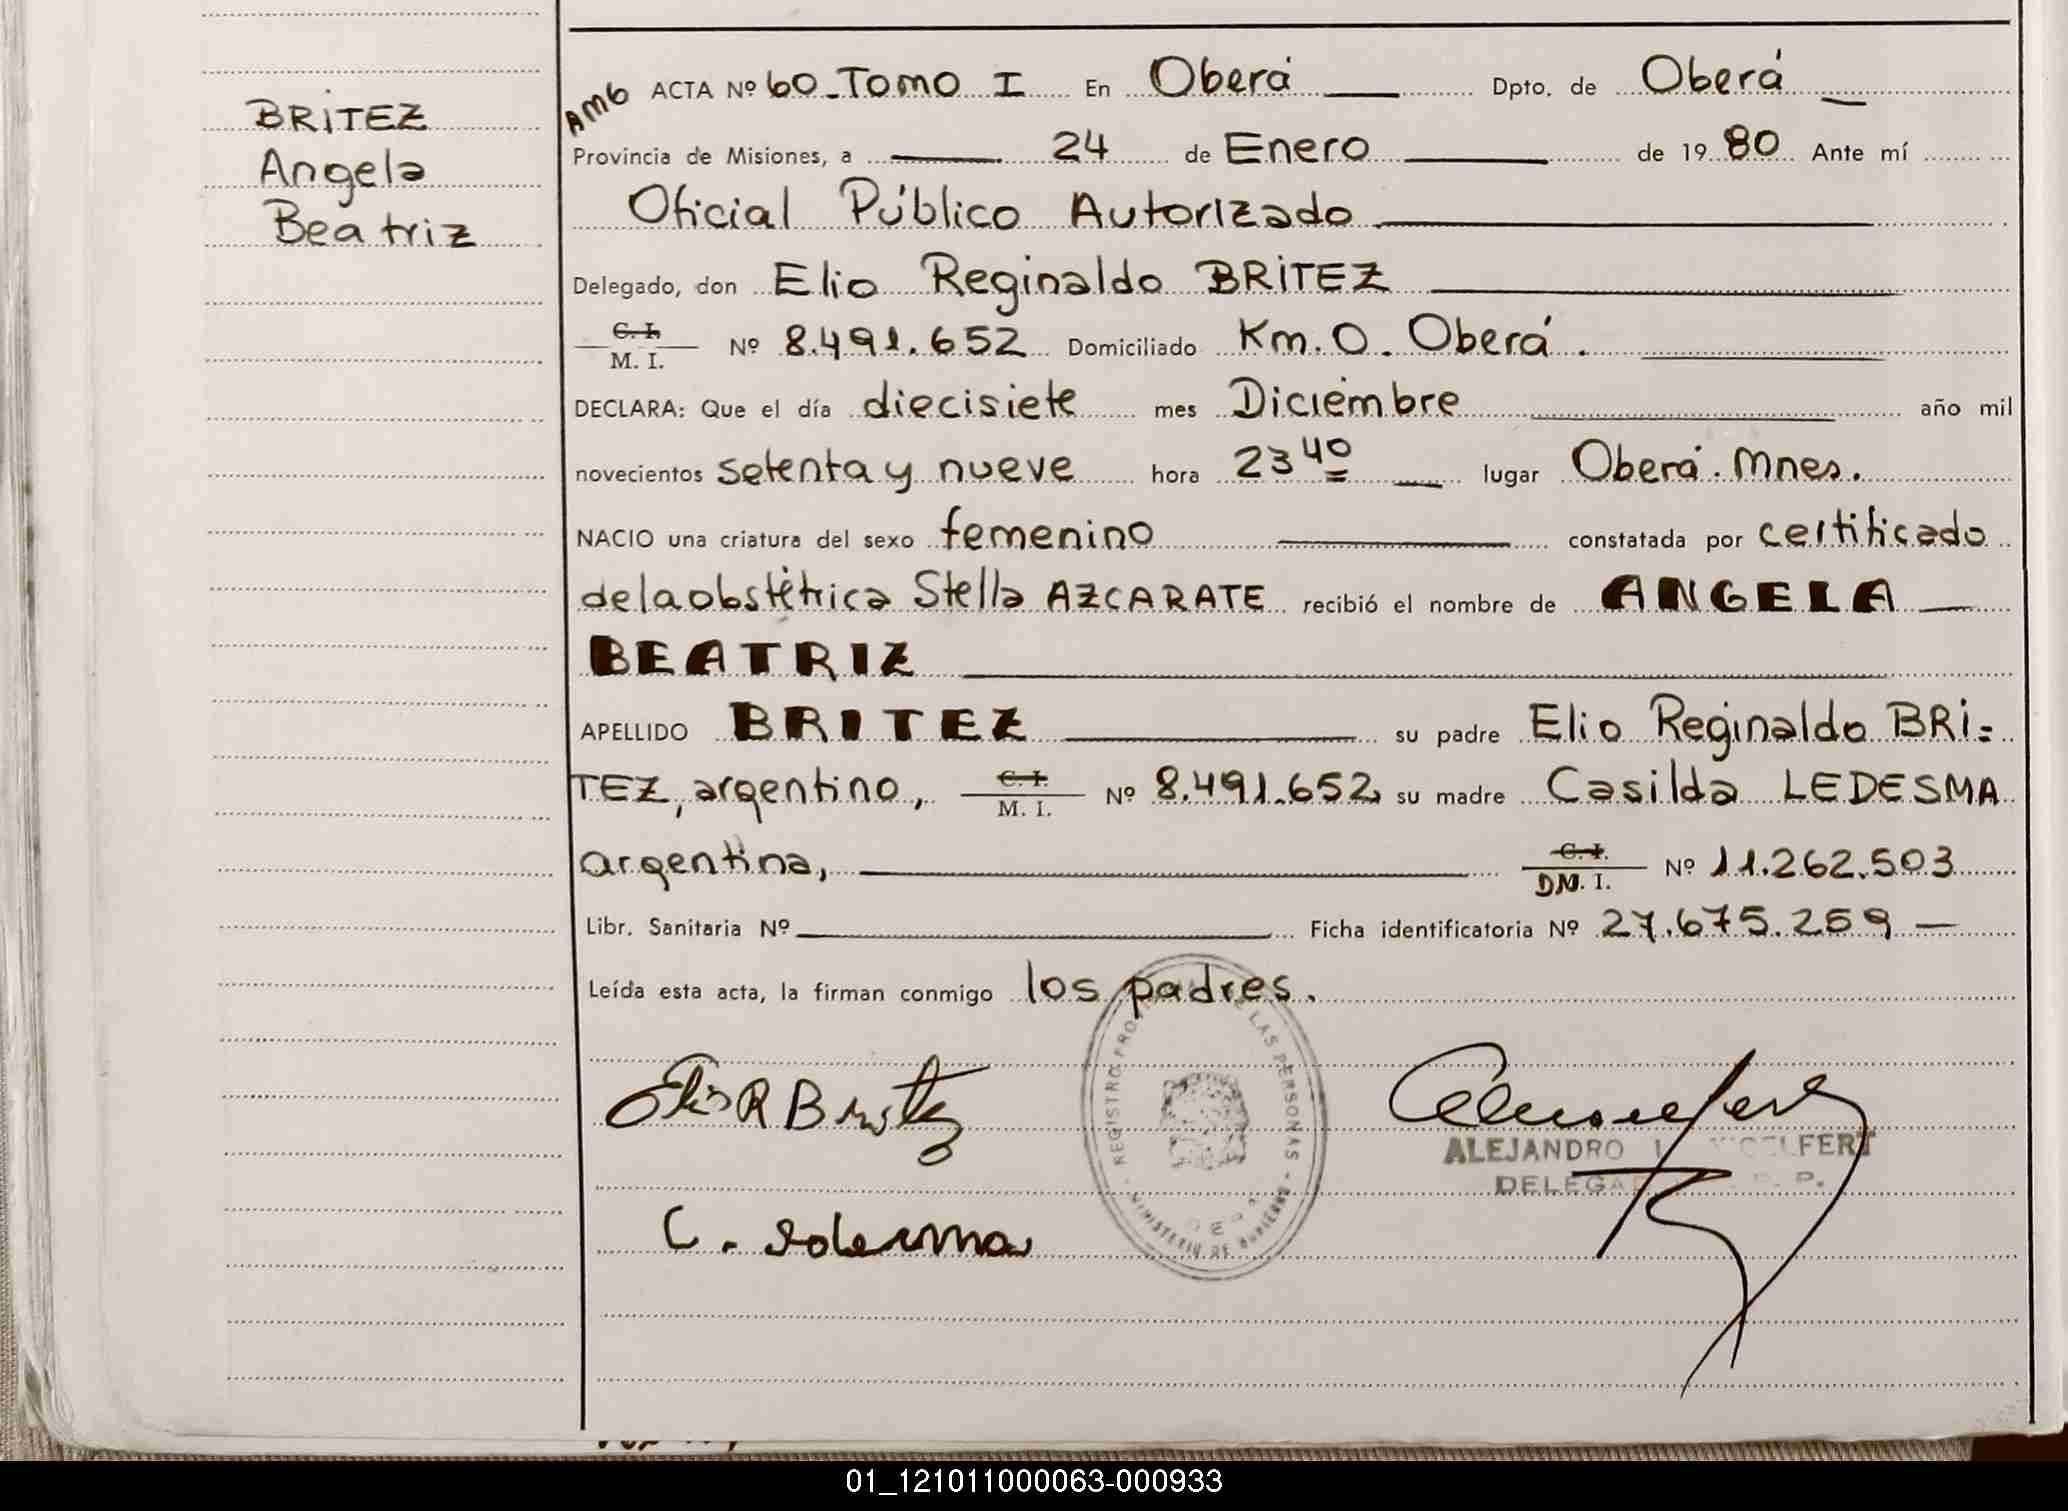 BRITEZ
Angela
Beatriz
AMB ACTA Nº 60 - Tomo I En Oberá Dpto. de Oberá
Provincia de Misiones, a 24 de Enero de 1980 Ante mí
Oficial Público Autorizado
Delegado, don Elio Reginaldo BRITEZ
C. I. M. I. Nº 8.491.652 Domiciliado Km. 0. Oberá.
DECLARA: Que el día diecisiete mes Diciembre año mil
novecientos setenta y nueve hora 23 40 lugar Oberá. Mnes.
NACIO una criatura del sexo femenino constatada por certificado
de la obstétrica Stella AZCARATE recibió el nombre de ANGELA
BEATRIZ
APELLIDO BRITEZ su padre Elio Reginaldo BRI=
TEZ, argentino, C. I. M. I. Nº 8.491.652, su madre Casilda LEDESMA
argentina, C. I. DN. I. Nº 11.262.503
Libr. Sanitaria Nº Ficha identificatoria Nº 27.675.259 -
Leída esta acta, la firman conmigo los padres.
Elio R Britez
REGISTRO LAS PERSONAS - MINISTERIO DE GOBIERNO
ALEJANDRO
C. Ledesma
01_121011000063-000933